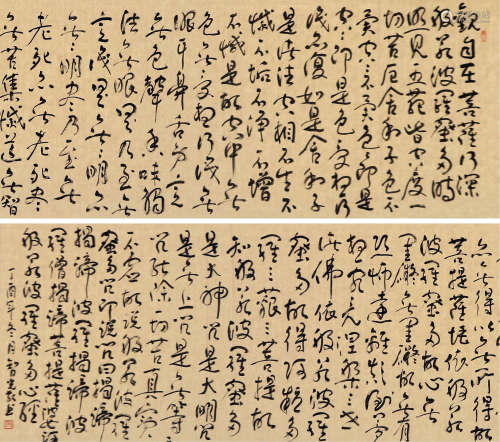 觀自在菩薩行深
般若波羅蜜多時
照見五蘊皆空度一
切苦厄舍利子色不
異空空不異色色即是
空空即是色受想行
識亦復如是舍利子
是諸法空相不生不
滅不垢不淨不增
不減是故空中無
色無受想行識無
眼耳鼻舌身意
無色聲香味觸
法無眼界乃至無
意識界無無明亦
無無明盡乃至無
老死亦無老死盡
無苦集滅道無智
亦無得以無所得故
菩提薩埵依般若
波羅蜜多故心無
罣礙無罣礙故無有
恐怖遠離顛倒夢
想究竟涅槃三世
諸佛依般若波羅
蜜多故得阿耨多
羅三藐三菩提故
知般若波羅蜜多
是大神咒是大明咒
是無上咒是無等等
咒能除一切苦真實
不虛故說般若波羅
蜜多咒即說咒曰揭諦
揭諦波羅揭諦波
羅僧揭諦菩提薩婆訶
般若波羅蜜多心經
丁酉年冬月智